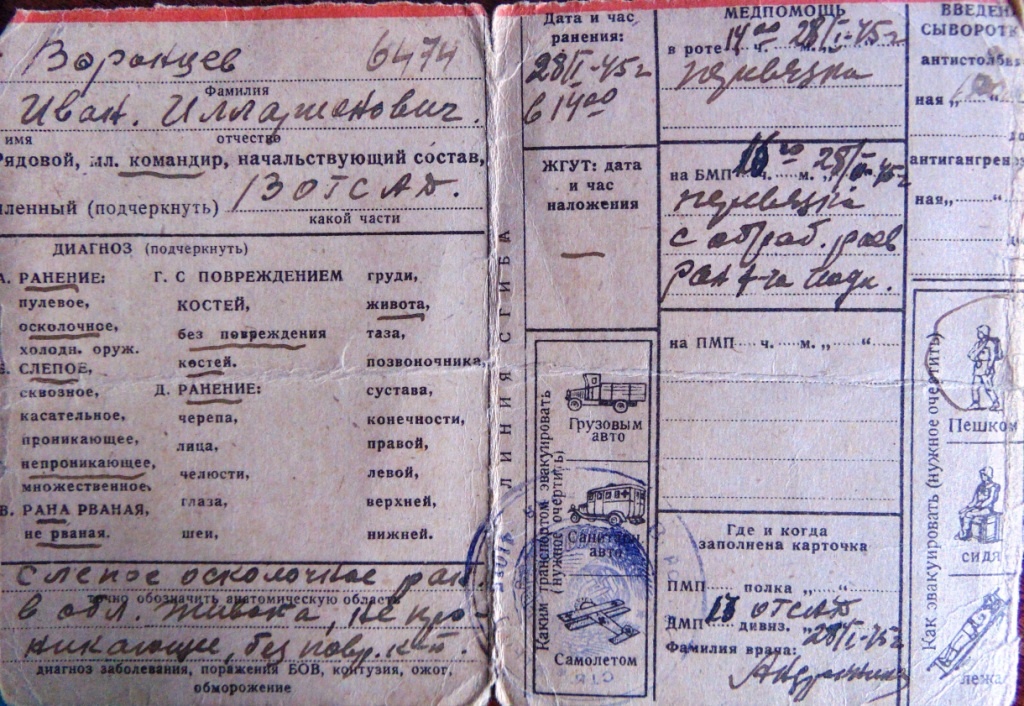 Воронцев 6474
Фамилия
Иван. Илларионович.
имя отчество
Рядовой, мл. командир, начальствующий состав,
(подчеркнуть) 13 ОТСАД.
какой части
ДИАГНОЗ (подчеркнуть)
А. РАНЕНИЕ:
пулевое,
осколочное,
холодн. оруж.
Б. СЛЕПОЕ,
сквозное,
касательное,
проникающее,
непроникающее,
множественное,
В. РАНА РВАНАЯ,
не рваная.
Г. С ПОВРЕЖДЕНИЕМ
КОСТЕЙ,
без повреждения
костей.
Д. РАНЕНИЕ:
черепа,
лица,
челюсти,
глаза,
шеи,
груди,
живота,
таза,
позвоночника,
сустава,
конечности,
правой,
левой,
верхней,
нижней.
Слепое осколочное ран.
точно обозначить анатомическую область
в обл. живота, не про
никающее, без повр. к-т.
диагноз заболевания, поражения БОВ, контузия, ожог,
обморожение
ЛИНИЯ СГИБА
Дата и час
ранения:
28/I-45г
в 14 00
ЖГУТ: дата
и час
наложения
—
Каким транспортом эвакуировать
(нужное очертить)
Грузовым
авто
Санитарн.
авто
Самолетом
МЕДПОМОЩЬ
в роте 14 00 ч. м. 28/I-45г
перевязка
на БМП 16 00 ч. м. „ 28/I-45г
перевязка
с обраб. краев
ран
на ПМП ч. м. „ “
Где и когда
заполнена карточка
ПМП полка „ “
ДМП 13 ОТСАД дивиз. „ 28/I-45г
Фамилия врача:
ВВЕДЕН
СЫВОРОТК
антистолбн
ная „ “
антигангрен
ная „ “
Как эвакуировать (нужное очертить)
Пешком
сидя
лежа